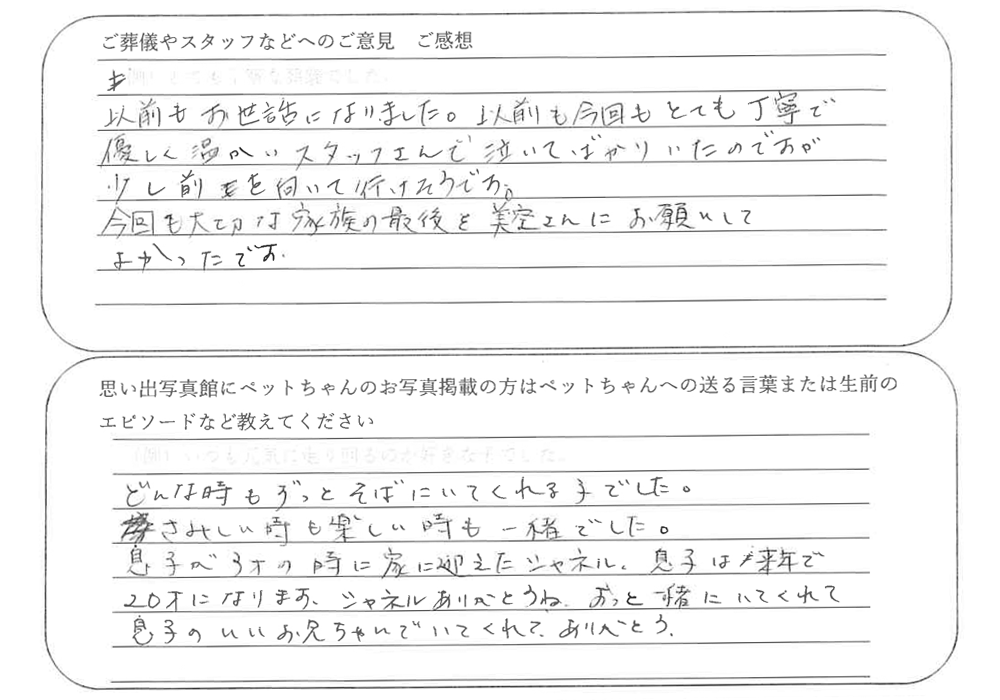 ご葬儀やスタッフなどへのご意見　ご感想
以前もお世話になりました。以前も今回もとても丁寧で
優しく温かいスタッフさんで泣いてばかりいたのですが
少し前を向いて行けそうです。
今回も大切な家族の最後を美空さんにお願いして
よかったです.
思い出写真館にペットちゃんのお写真掲載の方はペットちゃんへの送る言葉または生前の
エピソードなど教えてください
（例）いつも元気に走り回るのが好きな子でした。
どんな時もずっとそばにいてくれる子でした。
さみしい時も楽しい時も一緒でした。
息子が3才の時に家に迎えたシャネル、息子は来年で
20才になります、シャネルありがとうね、ずっと一緒にいてくれて
息子のいいお兄ちゃんでいてくれて、ありがとう.